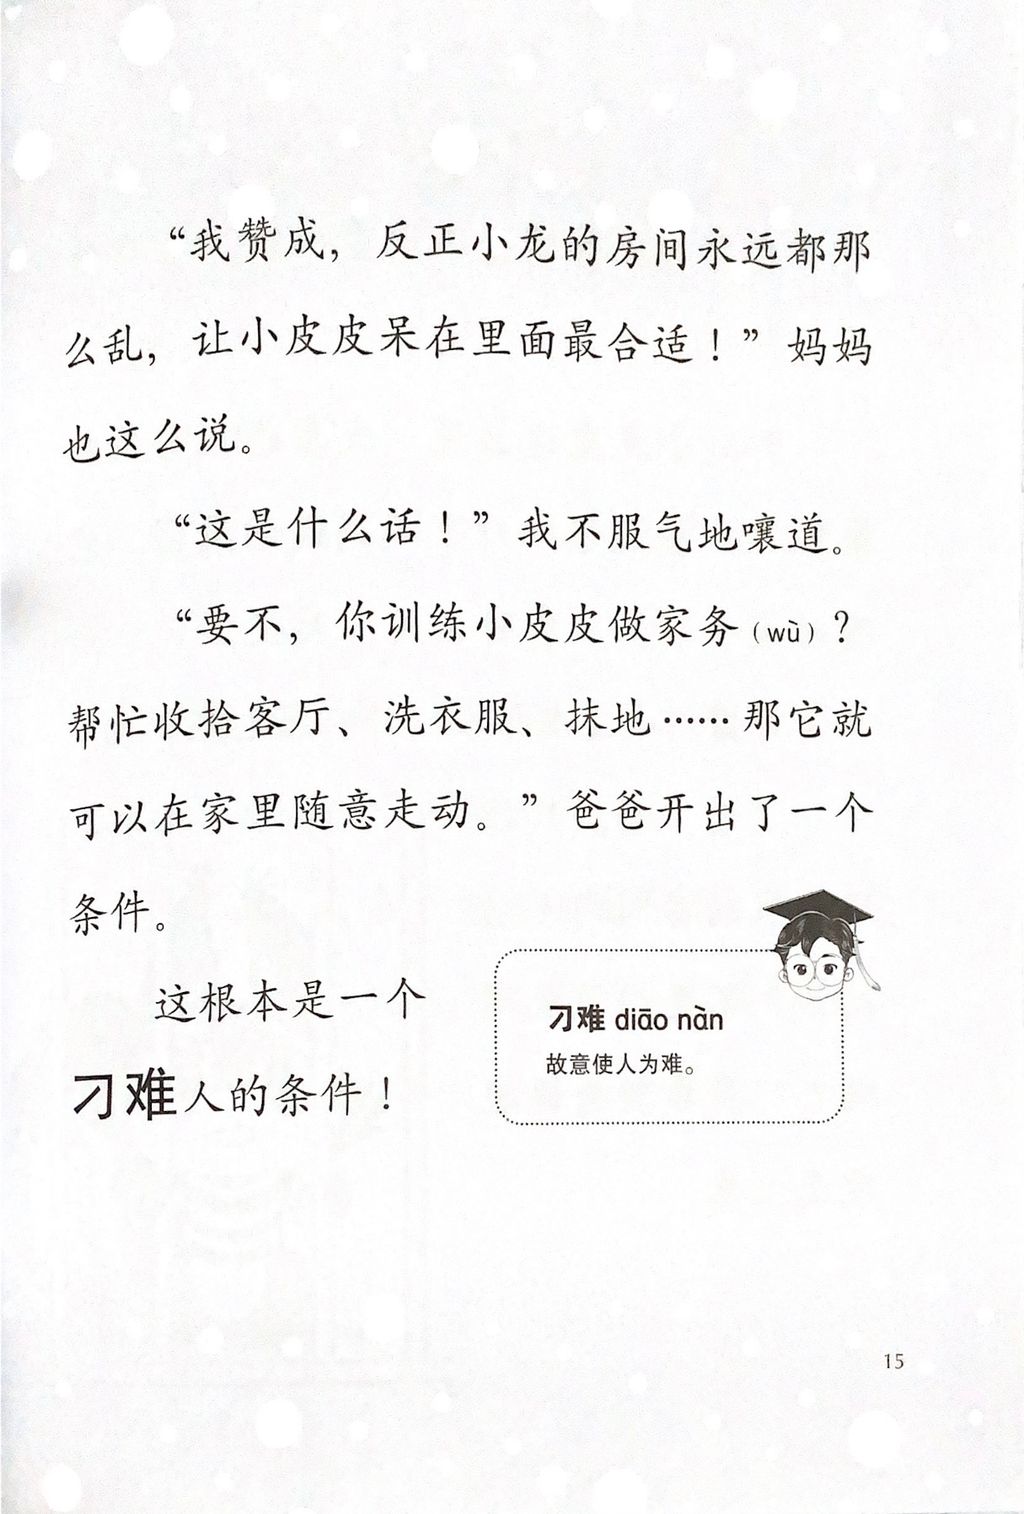 “我赞成，反正小龙的房间永远都那
么乱，让小皮皮呆在里面最合适！”妈妈
也这么说。
“这是什么话！”我不服气地嚷道。
“要不，你训练小皮皮做家务（wù）？
帮忙收拾客厅、洗衣服、抹地……那它就
可以在家里随意走动。”爸爸开出了一个
条件。
这根本是一个
刁难人的条件！
刁难 diāo nàn
故意使人为难。
15